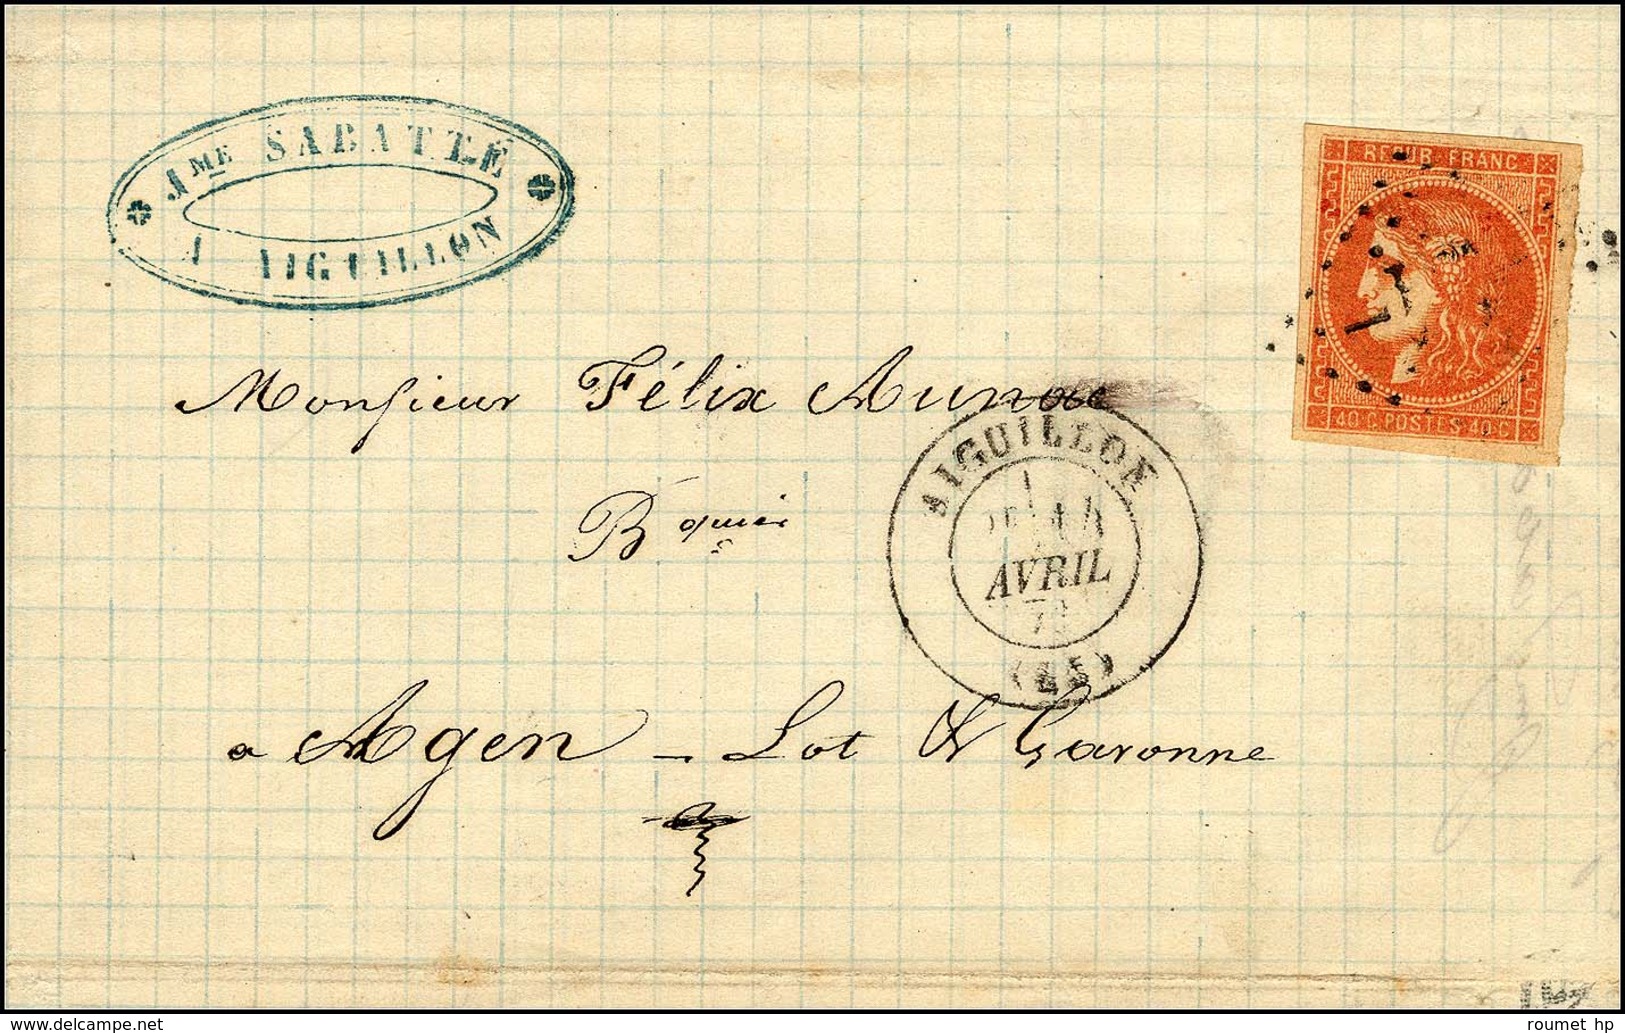 Jme SABATTÉ
A AIGUILLON
REPUB. FRANC
40 C POSTES 40 C
Monsieur Félix Aunac
Bquier
AIGUILLON
AVRIL
(45)
a Agen - Lot & Garonne
www.delcampe.net
roumet hp